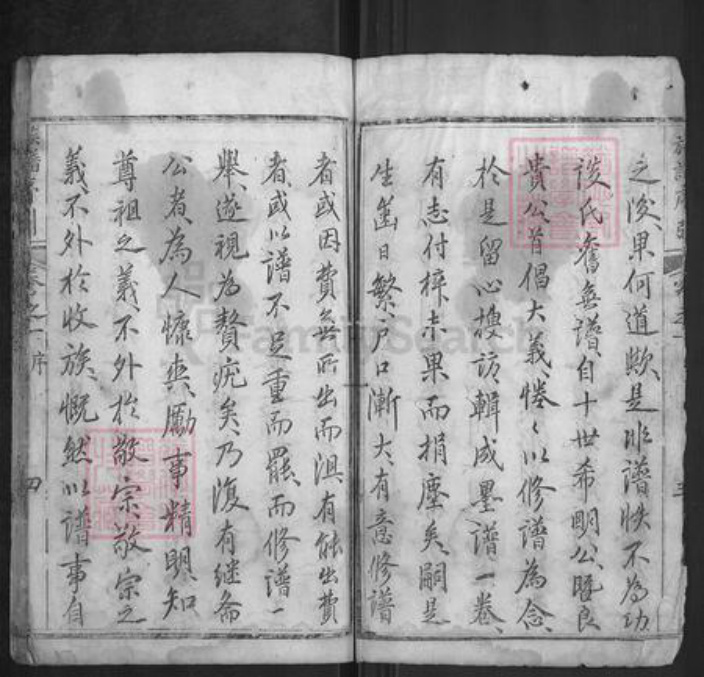 之後、果何道歟、是非譜帙不為功
談氏舊無譜、自十世希明公、曁良
貴公首倡大義、惓〻以修譜為念、
於是留心搜訪、輯成墨譜一卷、
有志付梓、未果而捐塵矣、嗣是
生齒日繁、戸口漸大、有意修譜
者或因費無所出而沮、有能出費
者、或以譜不足重而罷、而修譜一
舉、遂視為贅疣矣、乃復有継侖
公者、為人慷爽、勵事精明、知
尊祖之義、不外於敬宗、敬宗之
義、不外於收族、慨然以譜事自
族譜序
卷之一 序
四
FamilySearch